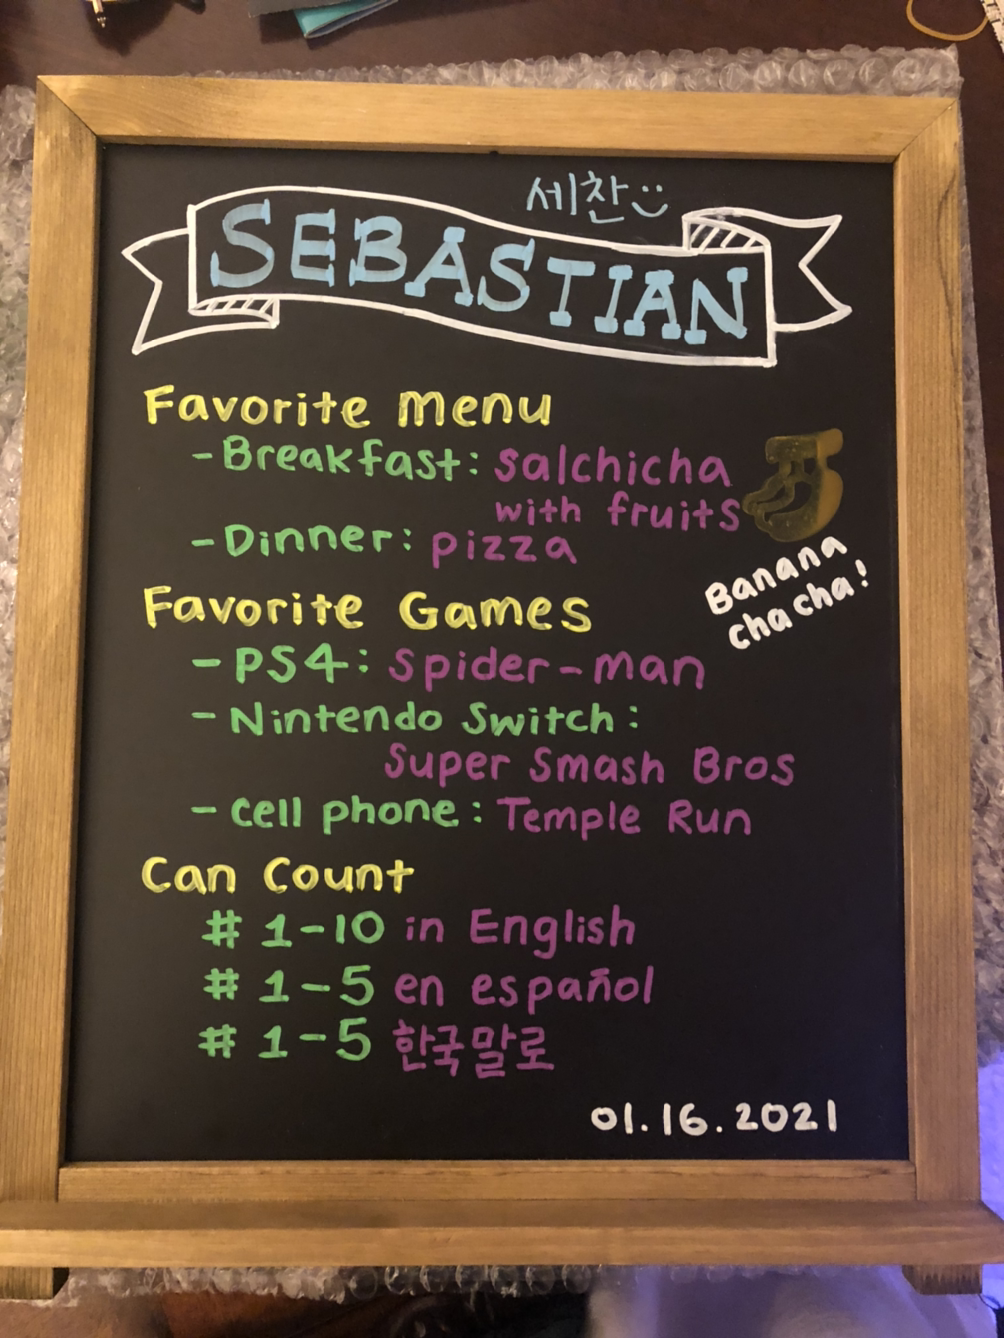 세찬
SEBASTIAN
Favorite Menu
- Breakfast: salchicha
with fruits
- Dinner: pizza
Banana
cha cha!
Favorite Games
- PS4: Spider-man
- Nintendo Switch:
Super Smash Bros
- Cell phone: Temple Run
Can Count
# 1-10 in English
# 1-5 en español
# 1-5 한국말로
01.16.2021